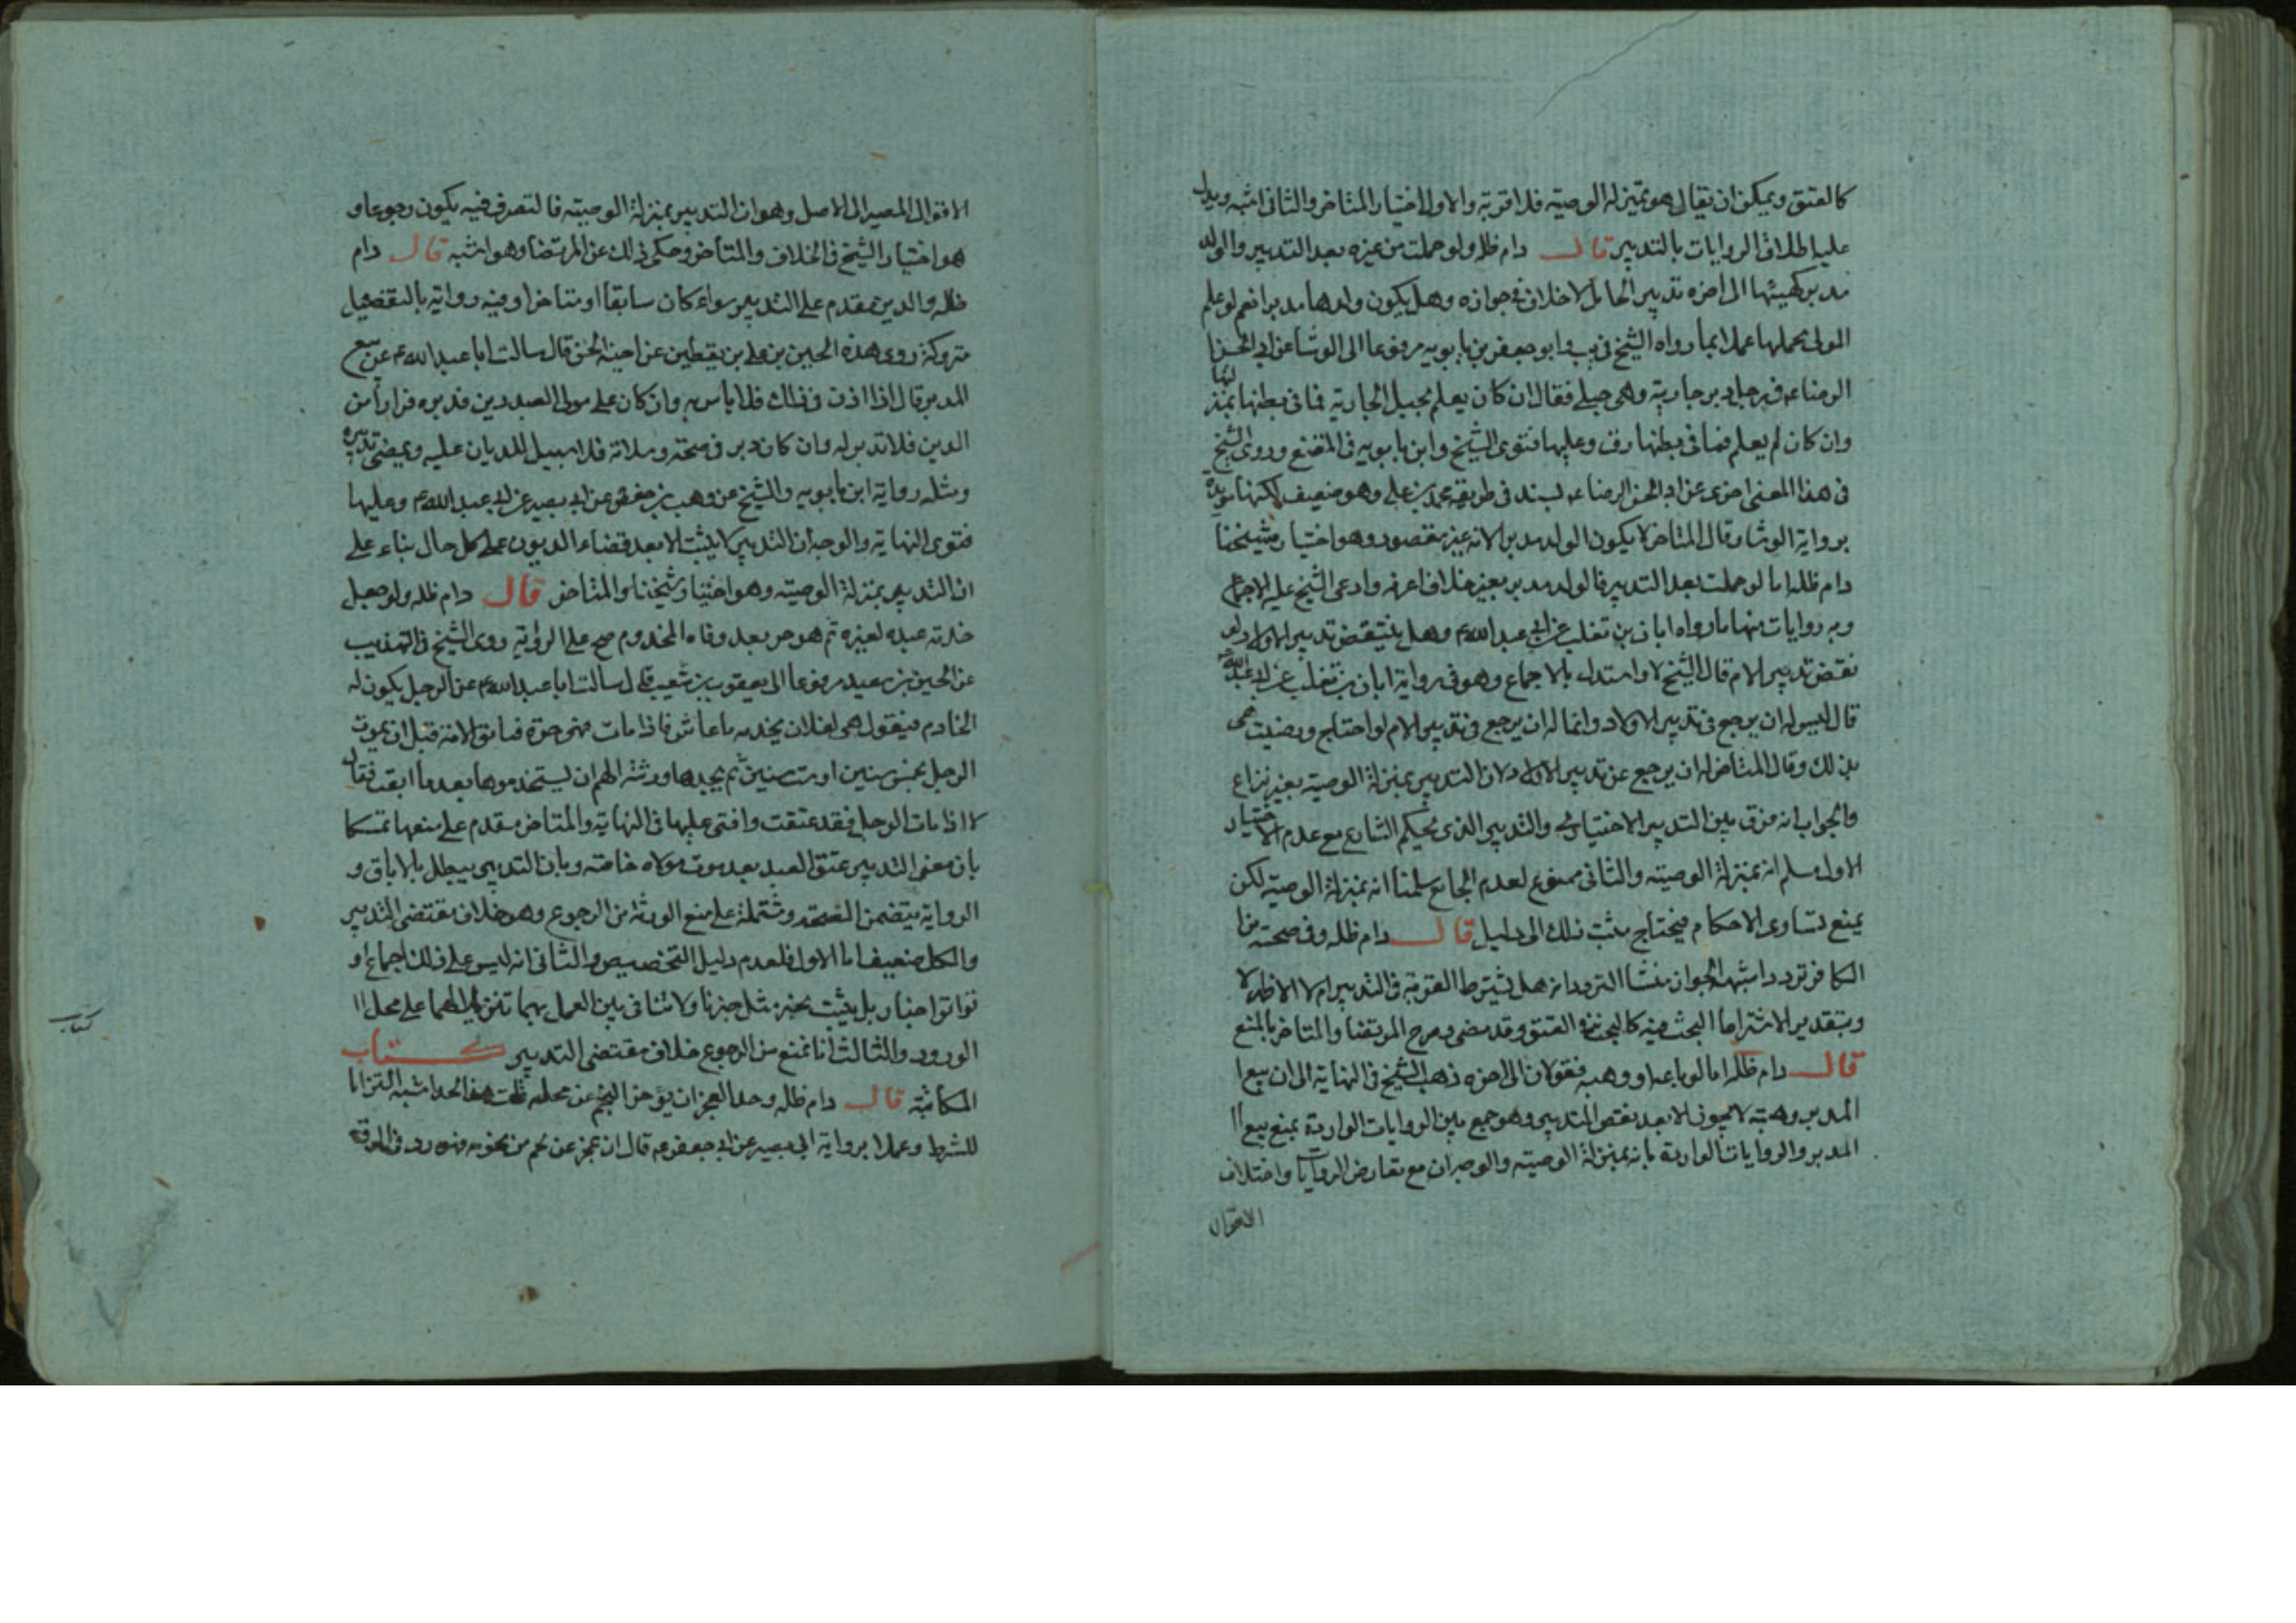 كالعتق ويمكن ان يقال هو بمنزله الوصيته فلا قربة والاول اختيار المتاخر والثانى اشبه ويدل
عليه اطلاق الروايات بالتدبير قال دام ظله ولو حملت من غيره بعد التدبير والولد
مدبر كهيئتها الى اخره تدبير الحامل لا خلاف فى جوازه وهل يكون ولدها مدبرا نعم لو علم
المولى بحملها عملا بما رواه الشيخ فى يب وابو جعفر بن بابويه مرفوعا الى الوشا عن ابى الحسن
الرضاء فى رجل دبر جارية وهى حبلى فقال ان كان يعلم بحبل الجارية فما فى بطنها بمنزلتها
وان كان لم يعلم فما فى بطنها رق وعليها فتوى الشيخ وابن بابويه فى المقنع وروى الشيخ
فى هذا المعنى اخرى عن ابى الحسن الرضاء بسند فى طريقه محمد بن على وهو ضعيف لكنها مويدة
برواية الوشا وقال المتاخر لا يكون الولد مدبرا لانه غير مقصود وهو اختيار شيخنا
دام ظله اما لو حملت بعد التدبير فالولد مدبر بغير خلاف اعرفه وادعى الشيخ عليه الاجماع
وبه روايات منها ما رواه ابان بن تغلب عن ابى عبد الله ع وهل ينتقض تدبير الاولاد لو
نقض تدبير الام قال الشيخ لا واستدل بالاجماع وهو فى رواية ابان بن تغلب عن ابى عبد الله
قال ليس له ان يرجع فى تدبير الاولاد وانما له ان يرجع فى تدبير الام لو احتاج ورضيت هى
بذلك وقال المتاخر له ان يرجع عن تدبير الاولاد لان التدبير بمنزلة الوصية بغير نزاع
والجواب انه فرق بين التدبير الاختيارى والتدبير الذى بحكم الشارع مع عدم الاختيار
الاول مسلم انه بمنزلة الوصيته والثانى ممنوع لعدم الجامع سلمنا انه بمنزلة الوصية لكن
يمنع تساوى الاحكام فيحتاج مثبت ذلك الى دليل قال دام ظله وفى صحته من
الكافر تردد اشبهه الجواز منشا التردد انه هل يشترط القربة فى التدبير ام لا الاظهر لا
وبتقدير الاشتراط البحث فيه كالبحث فى العتق وقد مضى وصرح المرتضا والمتاخر بالمنع
قال دام ظله اما لو باعه او وهبه فقولان الى اخره ذهب الشيخ فى النهاية الى ان بيع ا
المدبر وهبته لا يجوز الا بعد نقض التدبير وهو جمع بين الروايات الواردة بمنع بيع ا
المدبر والروايات الواردة بانه بمنزلة الوصيته والوجه ان مع تعارض الروايات واختلاف
الاقوال
الاقوال المصير الى الاصل وهو ان التدبير بمنزلة الوصيته فالتصرف فيه يكون رجوعا و
هو اختيار الشيخ فى الخلاف والمتاخر وحكى ذلك عن المرتضا وهو اشبه قال دام
ظله والدين مقدم على التدبير سواء كان سابقا او متاخرا وفيه رواية بالتفصيل
متروكة روى هذه الحسين بن على بن يقطين عن اخيه الحسن قال سالت ابا عبد الله ع عن بيع
المدبر قال اذا اذن فى ذلك فلا باس به وان كان على مولى العبد دين فدبره فرارا من
الدين فلا تدبير له وان كان دبر فى صحته وسلامة فلا سبيل للديان عليه ويمضى تدبيره
ومثله رواية ابن بابويه والشيخ عن وهب بن حفص عن ابى بصير عن ابى عبد الله ع وعليها
فتوى النهاية والوجه ان التدبير لا يثبت الا بعد قضاء الديون على كل حال بناء على
ان التدبير بمنزلة الوصيته وهو اختيار شيخنا والمتاخر قال دام ظله ولو جعل
خدمته عبده لغيره ثم هو حر بعد وفاه المخدوم صح على الرواية روى الشيخ فى التهذيب
عن الحسين بن سعيد مرفوعا الى يعقوب بن شعيب قال سالت ابا عبد الله ع عن الرجل يكون له
الخادم فيقول هى لفلان يخدمه ما عاش فاذا مات فهى حرة فتابق الامة قبل ان يموت
الرجل بخمس سنين او ست سنين ثم يجدها ورثته الهم ان يستخدموها بعد ما ابقت فقال
لا اذا مات الرجل فقد عتقت وافتى عليها فى النهاية والمتاخر مقدم على منعها تمسكا
بان معنى التدبير عتق العبد بعد موت مولاه خاصته وبان التدبير يبطل بالاباق و
الرواية يتضمن الصحة ومشتملة على منع الورثة من الرجوع وهو خلاف مقتضى التدبير
والكل ضعيف اما الاول فلعدم دليل التخصيص والثانى انه ليس على ذلك اجماع او
تواتر اخبار بل يثبت بخبر مثل خبرنا ولا تنافى بين العمل بهما تنزيلا لهما على محل ا
الورود والثالث انا نمنع من الرجوع خلاف مقتضى التدبير كتاب
المكاتبة قال دام ظله وحد العجز ان يؤخر النجم عن محله قلت هذا الحد اشبه التزاما
للشرط وعملا برواية ابى بصير عن ابى جعفر ع قال ان عجز عن نجم من نجومه فهو رد فى الرق
كتاب